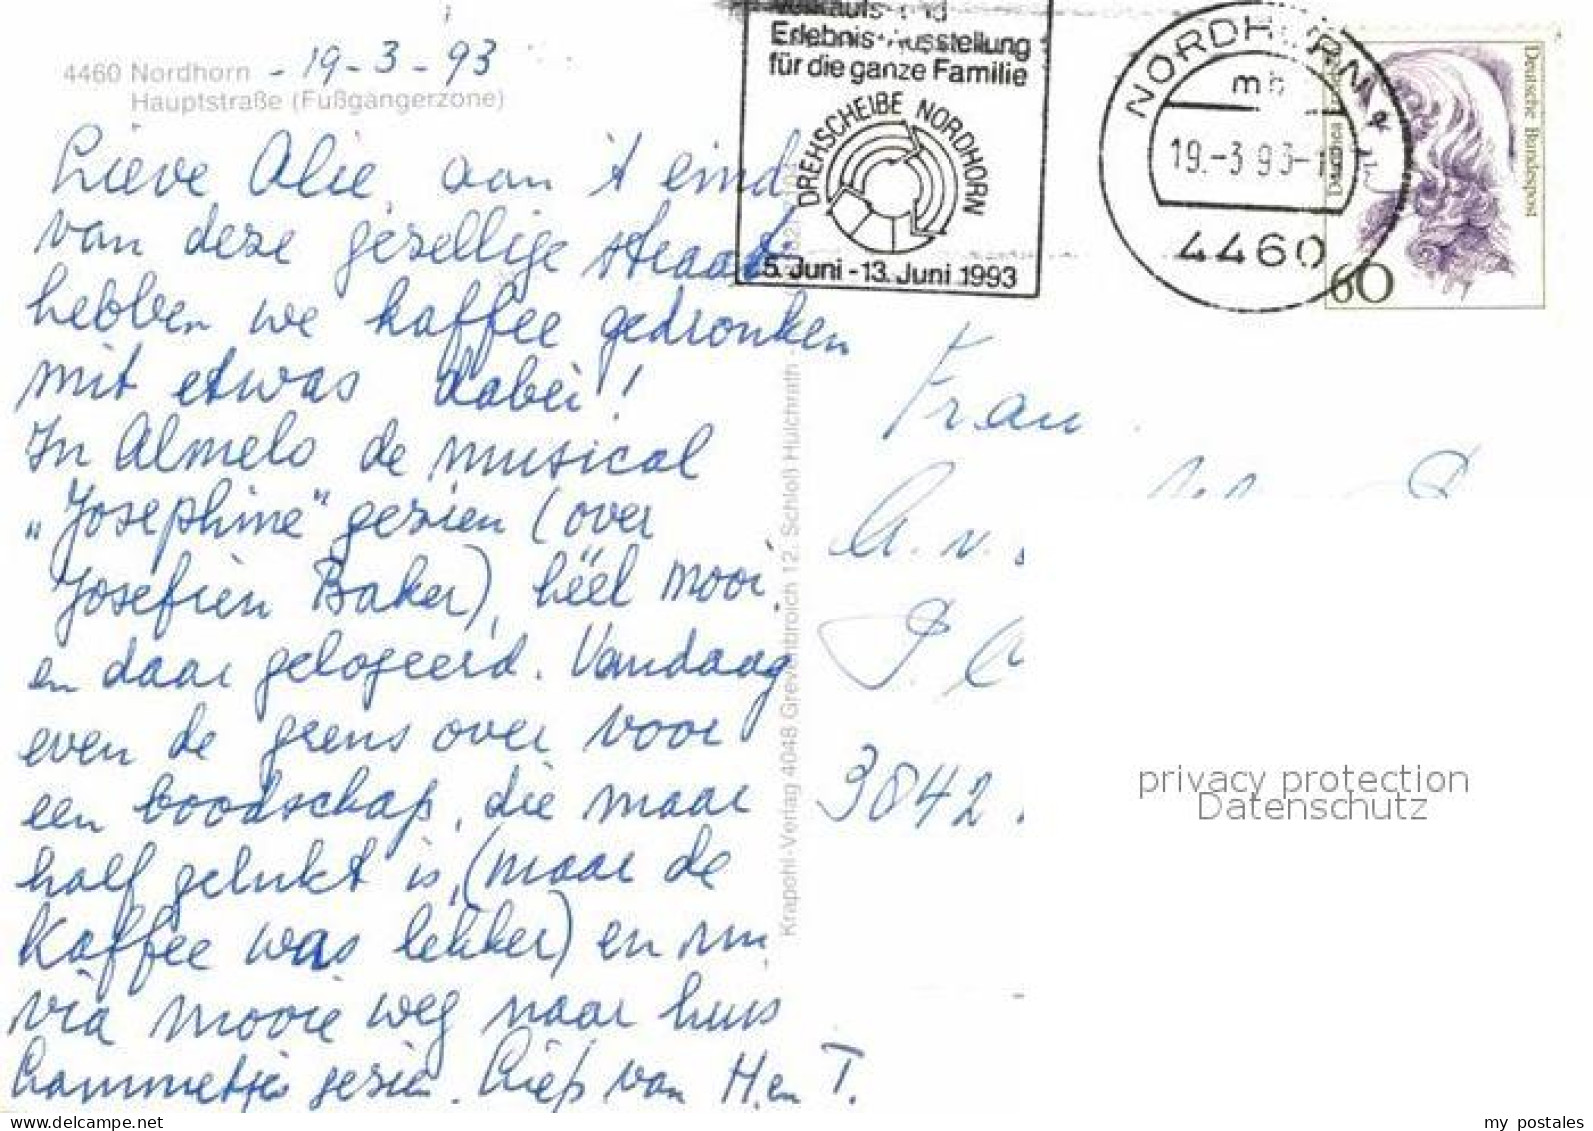 4460 Nordhorn - 19-3-93
Hauptstraße (Fußgängerzone)
Lieve Alie, aan 't eind
van deze gezellige straat
hebben we kaffee gedronken
mit etwas dabei!
In Almelo de musical
„Josephine" gezien (over
Josefien Baker), héél mooi,
en daar gelogeerd. Vandaag
even de grens over voor
een boodschap, die maar
half gelukt is, (maar de
kaffee was lekker) en nu
via mooie weg naar huis
Lammetjes gezien. Liefs van H. en T.
Krapohl-Verlag 4048 Grevenbroich 12, Schloß Hülchrath
Verkaufs- und
Erlebnis-Ausstellung
für die ganze Familie
DREHSCHEIBE NORDHORN
5. Juni - 13. Juni 1993
NORDHORN
mb
19.-3.93-
4460
Deutsche Bundespost
60
Frau
3842
privacy protection
Datenschutz
my postales